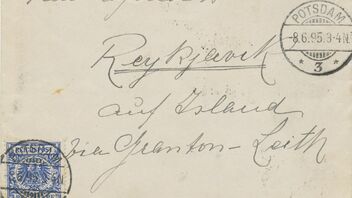 POTSDAM
-8.6.95.3-4N.
* 3 *
Reykjavik
auf Island
via Granton-Leith